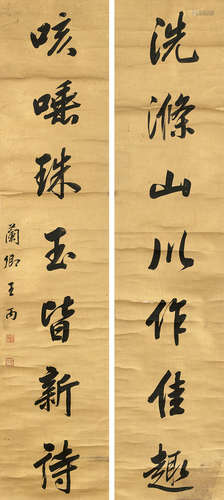 洗滌山川作佳趣
咳唾珠玉皆新詩
蘭卿王丙